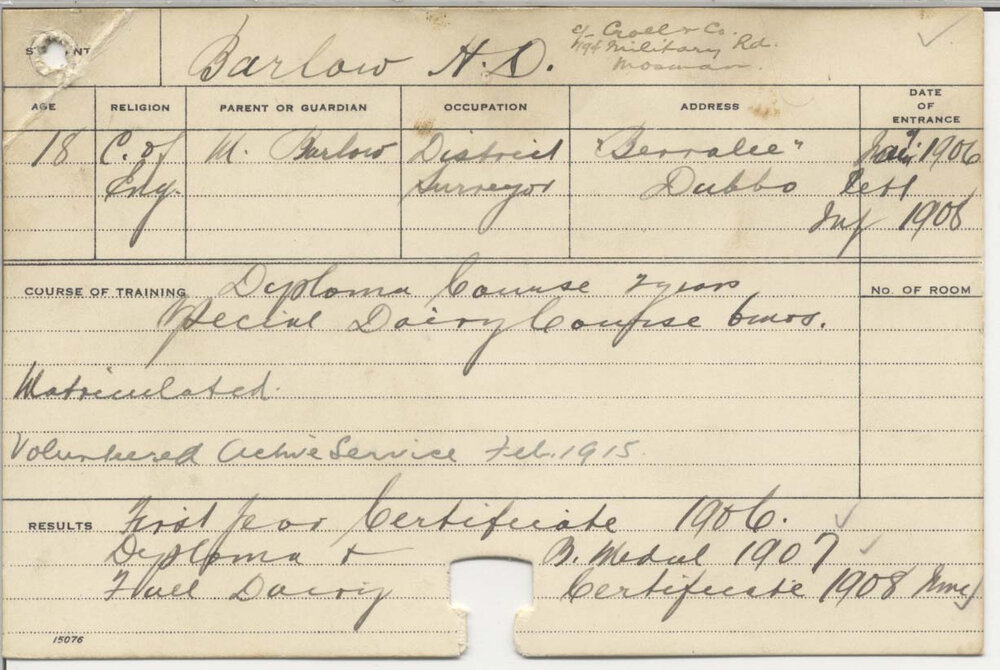 STUDENT Barlow H.D. c/- Croll & Co.
Military Rd.
Mosman.
AGE RELIGION PARENT OR GUARDIAN OCCUPATION ADDRESS DATE OF ENTRANCE
18 C. of M. Barlow District "Berralee" 1906
Eng. Surveyor Dubbo left
1908
COURSE OF TRAINING Diploma Course 2 years No. OF ROOM
Special Dairy Course 6 mos.
Matriculated.
Volunteered Active Service Feb. 1915.
RESULTS First Year Certificate 1906.
Diploma & B. Medal 1907
Full Dairy Certificate 1908
15076